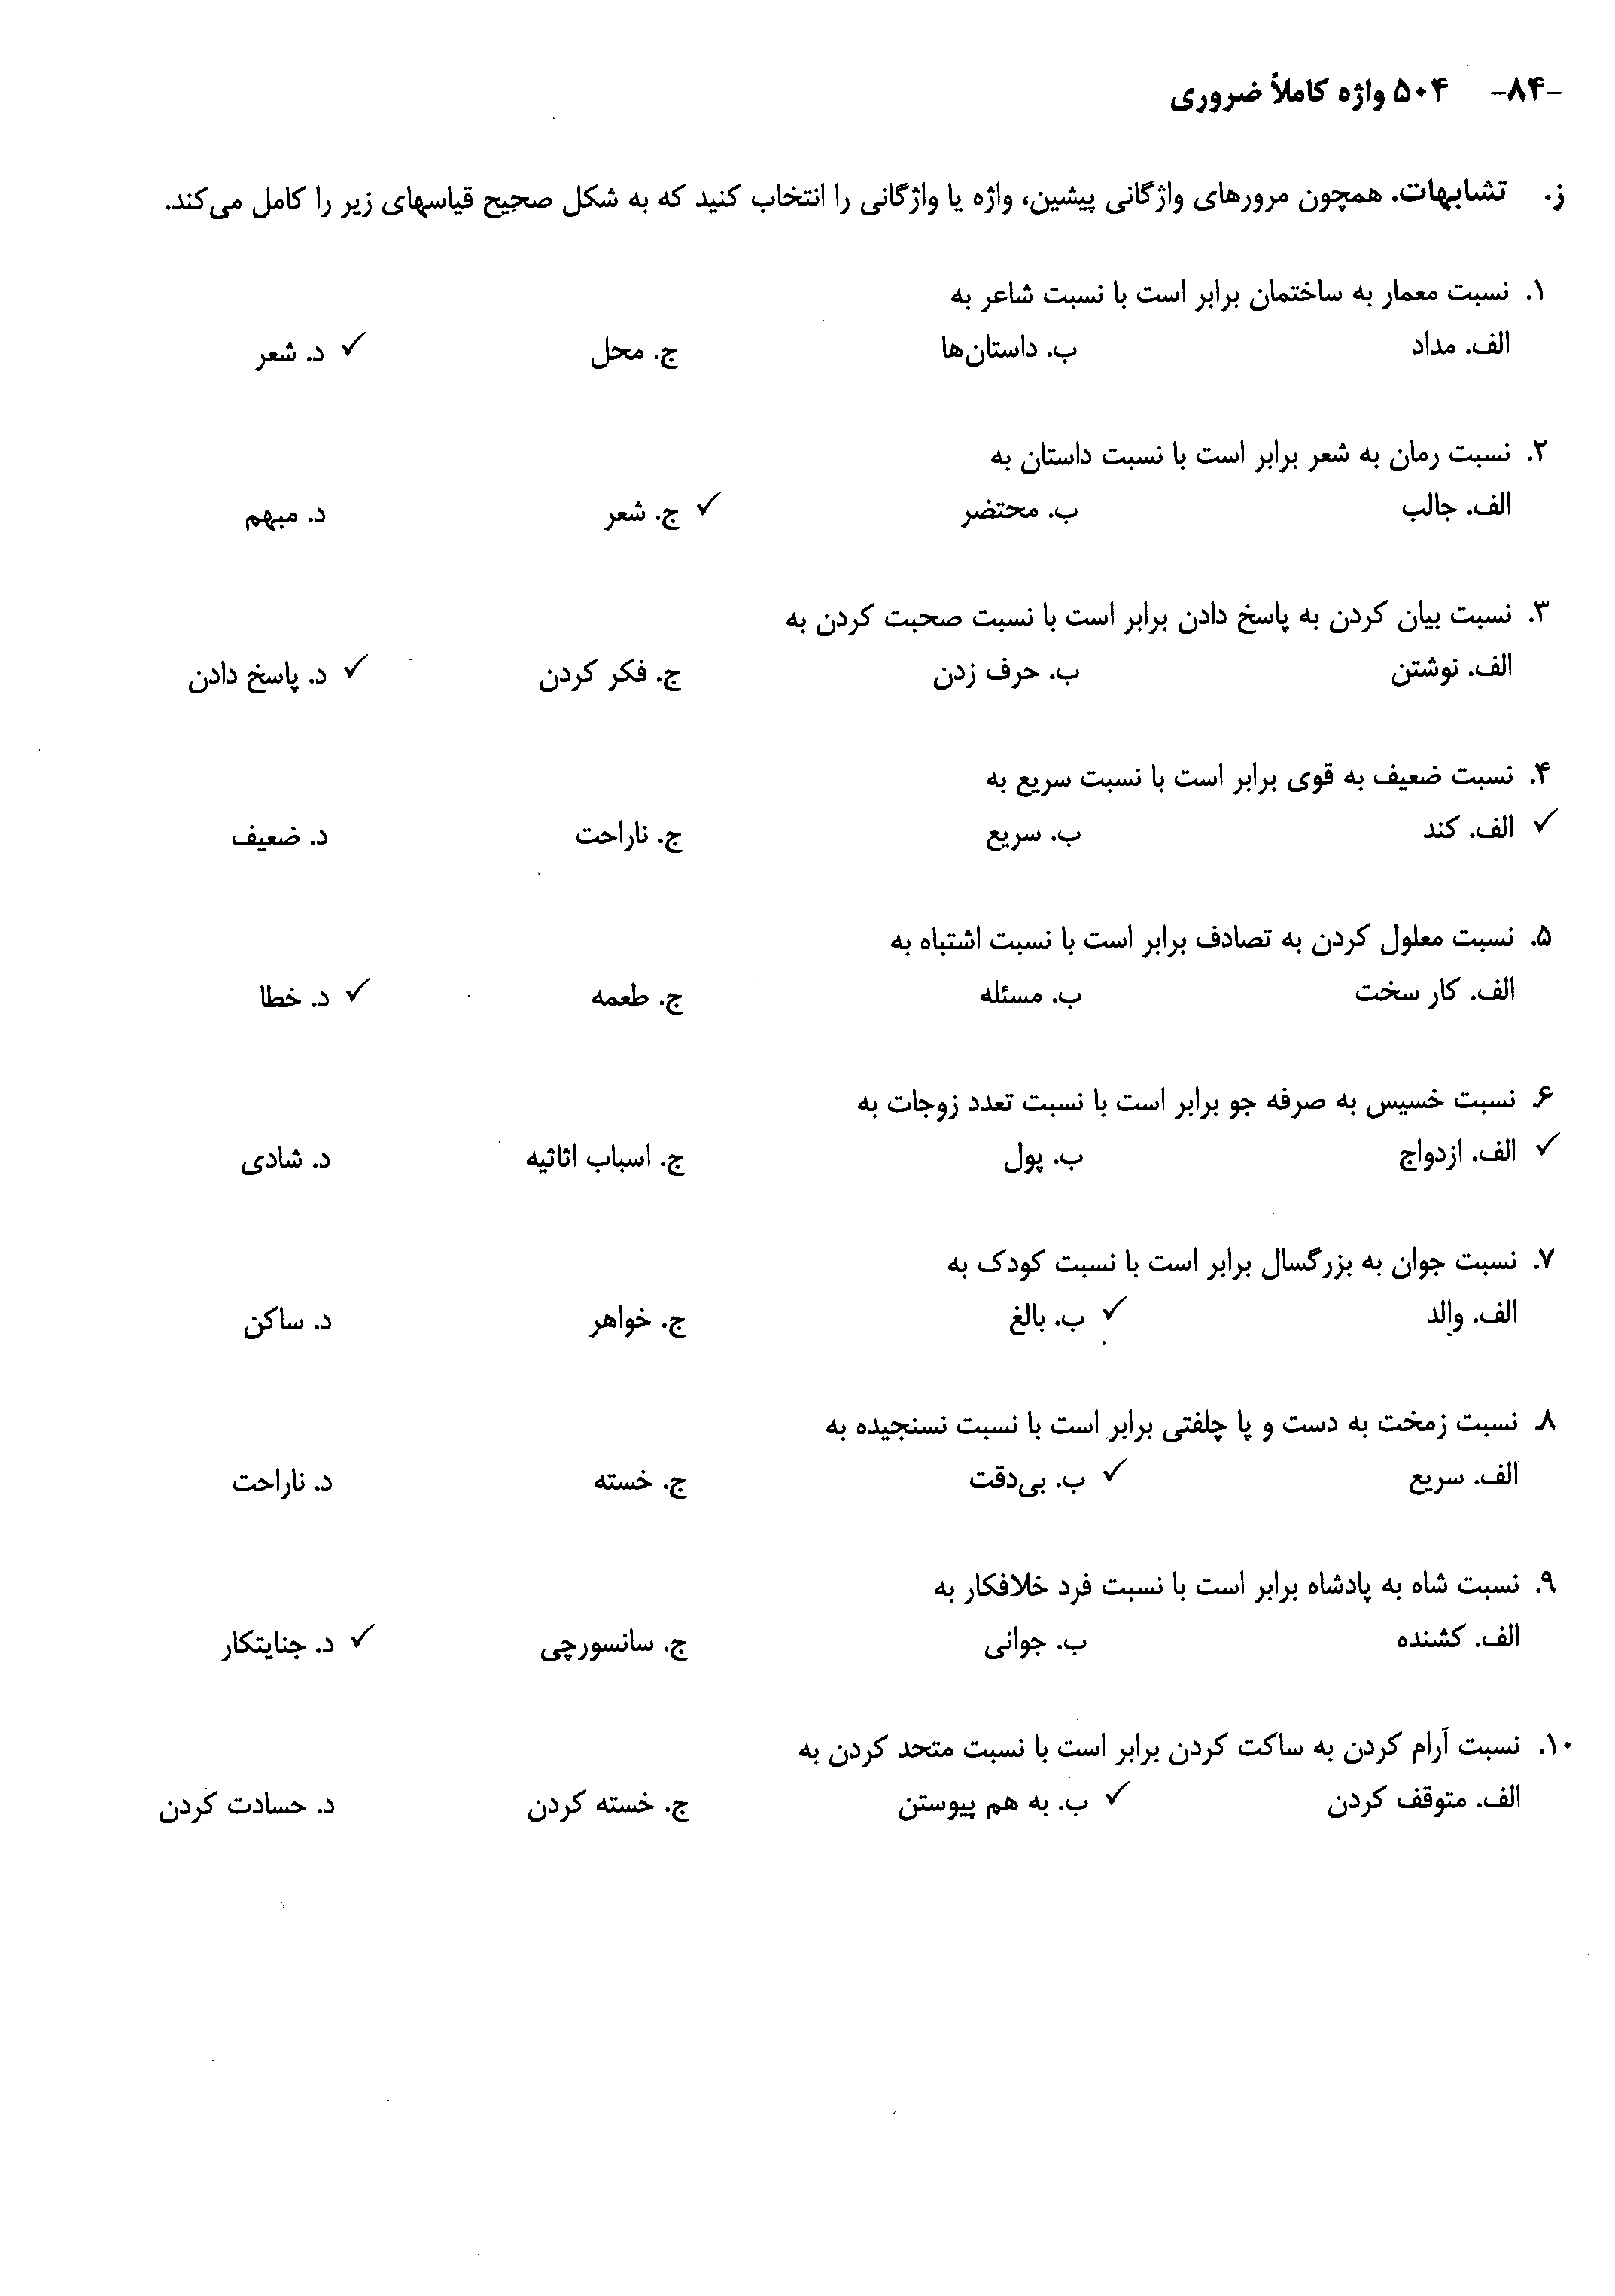 -۸۴- ۵۰۴ واژه کاملاً ضروری
ز. تشابهات. همچون مرورهای واژگانی پیشین، واژه یا واژگانی را انتخاب کنید که به شکل صحیح قیاسهای زیر را کامل می‌کند.
۱. نسبت معمار به ساختمان برابر است با نسبت شاعر به
الف. مداد ب. داستان‌ها ج. محل ✓ د. شعر
۲. نسبت رمان به شعر برابر است با نسبت داستان به
الف. جالب ب. محتضر ✓ ج. شعر د. مبهم
۳. نسبت بیان کردن به پاسخ دادن برابر است با نسبت صحبت کردن به
الف. نوشتن ب. حرف زدن ج. فکر کردن ✓ د. پاسخ دادن
۴. نسبت ضعیف به قوی برابر است با نسبت سریع به
✓ الف. کند ب. سریع ج. ناراحت د. ضعیف
۵. نسبت معلول کردن به تصادف برابر است با نسبت اشتباه به
الف. کار سخت ب. مسئله ج. طعمه ✓ د. خطا
۶. نسبت خسیس به صرفه جو برابر است با نسبت تعدد زوجات به
✓ الف. ازدواج ب. پول ج. اسباب اثاثیه د. شادی
۷. نسبت جوان به بزرگسال برابر است با نسبت کودک به
الف. والد ✓ ب. بالغ ج. خواهر د. ساکن
۸. نسبت زمخت به دست و پا چلفتی برابر است با نسبت نسنجیده به
الف. سریع ✓ ب. بی‌دقت ج. خسته د. ناراحت
۹. نسبت شاه به پادشاه برابر است با نسبت فرد خلافکار به
الف. کشنده ب. جوانی ج. سانسورچی ✓ د. جنایتکار
۱۰. نسبت آرام کردن به ساکت کردن برابر است با نسبت متحد کردن به
الف. متوقف کردن ✓ ب. به هم پیوستن ج. خسته کردن د. حسادت کردن